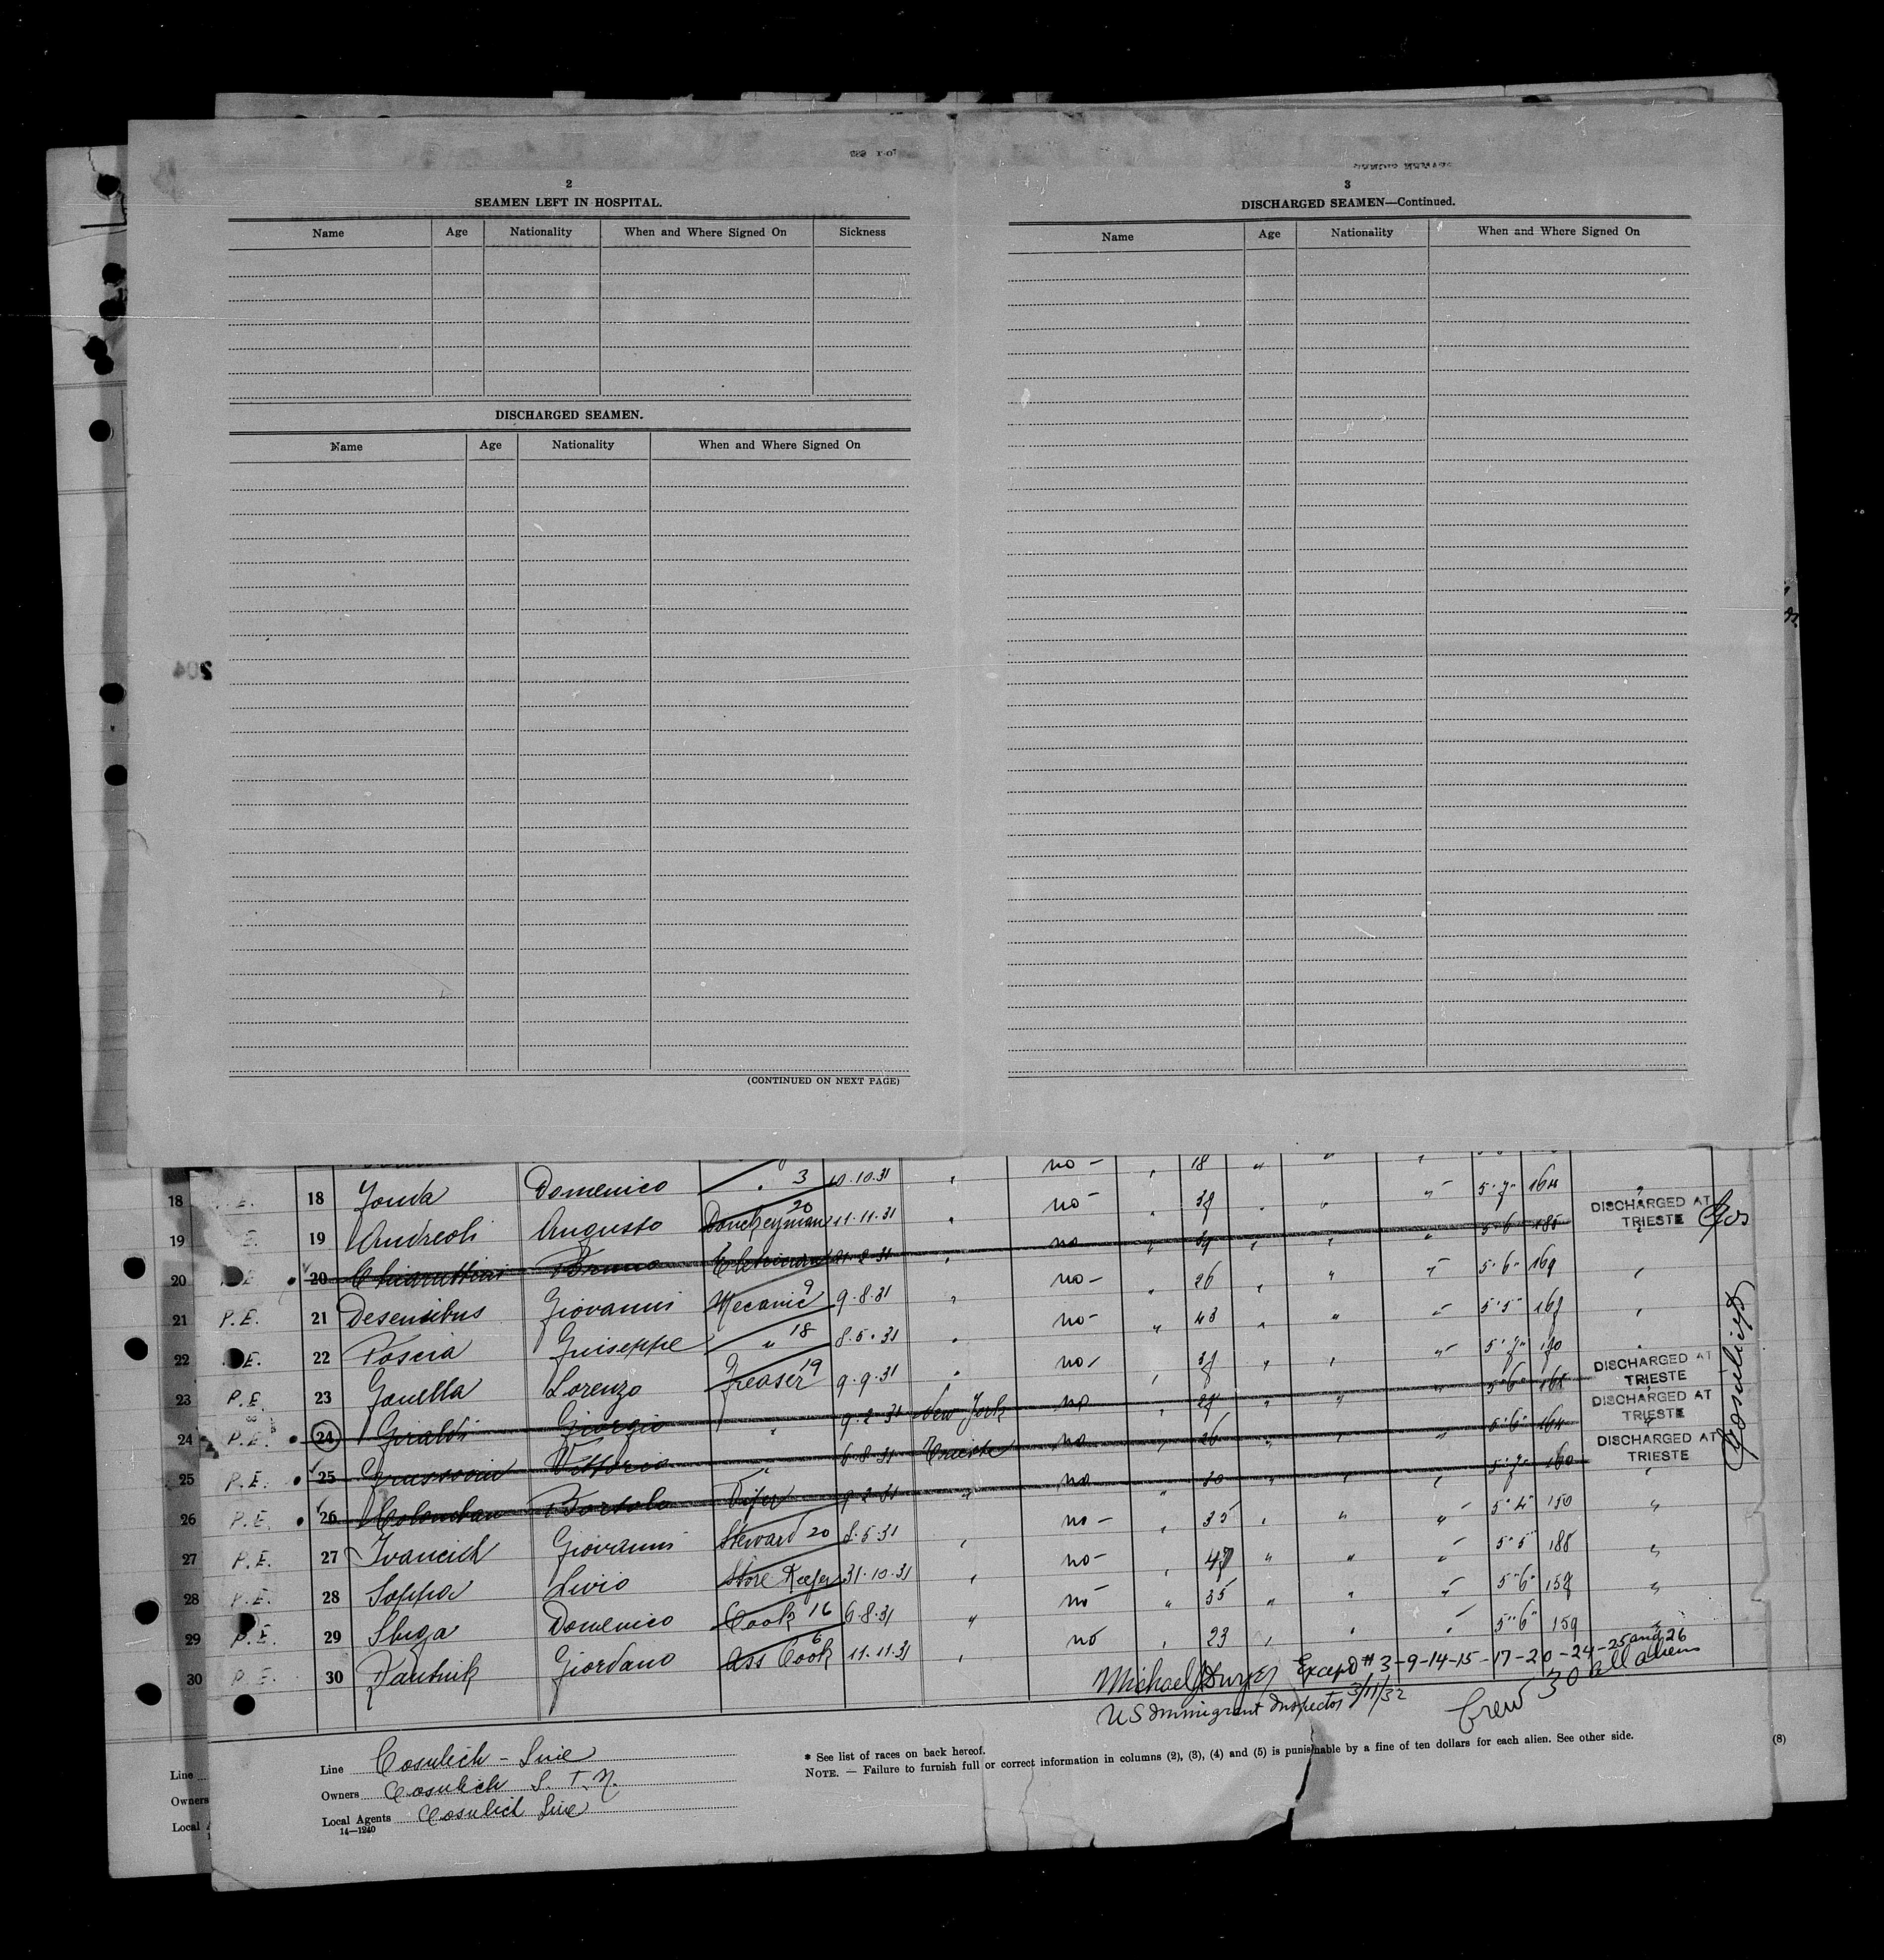 2
SEAMEN LEFT IN HOSPITAL.
Name Age Nationality When and Where Signed On Sickness
DISCHARGED SEAMEN.
Name Age Nationality When and Where Signed On
(CONTINUED ON NEXT PAGE)
3
DISCHARGED SEAMEN—Continued.
Name Age Nationality When and Where Signed On
204
no - " 18 " " "
18 18 Domenico " 3 10.10.31 " no - " " " " 5"7" 164 "
19 19 Andreoli Augusto 20 11.11.31 " no " " " " 5"6" DISCHARGED AT TRIESTE
20 20 Bruno " no - " 26 " " " 5"6" 169 "
21 P.E. 21 Giovanni Mecanic 9 9.8.31 " no - " 43 " " " 5"5" "
22 E. 22 Giuseppe " 18 8.5.31 " no - " " " " 5"7" "
23 P.E. 23 Gonella Lorenzo Greaser 19 9.9.31 " no " " " " 5"6" DISCHARGED AT TRIESTE
24 P.E. 24 Giraldi Giorgio " 9.2.31 New York no " 26 " " " 5"6" 164 DISCHARGED AT TRIESTE
25 P.E. 25 Vittorio " 6.8.31 Trieste no " 30 " " " 5"7" 160 DISCHARGED AT TRIESTE
26 P.E. 26 Bortolo 9.2.31 " no - " 35 " " " 5"4" 150 "
27 P.E. 27 Ivancich Giovanni Steward 20 8.5.31 " no - " " " " 5"5 188 "
28 P.E. 28 Soppa Livio Store Keeper 31.10.31 " no " 35 " " " 5"6" "
29 P.E. 29 Sbiga Domenico Cook 16 6.8.31 " no " 23 " " " 5"6" 159 "
30 P.E. 30 Giordano Ass Cook 6 11.11.31 "
Cosulich
Michael Except # 3-9-14-15-17-20-24-25 and 26
US Immigrant Inspector 3/11/32
Crew 30 all aliens
Line Cosulich - Line
Owners Cosulich S. T. N.
Local Agents Cosulich Line
14—1240
* See list of races on back hereof.
NOTE. — Failure to furnish full or correct information in columns (2), (3), (4) and (5) is punishable by a fine of ten dollars for each alien. See other side.
(8)
Line
Owners
Local